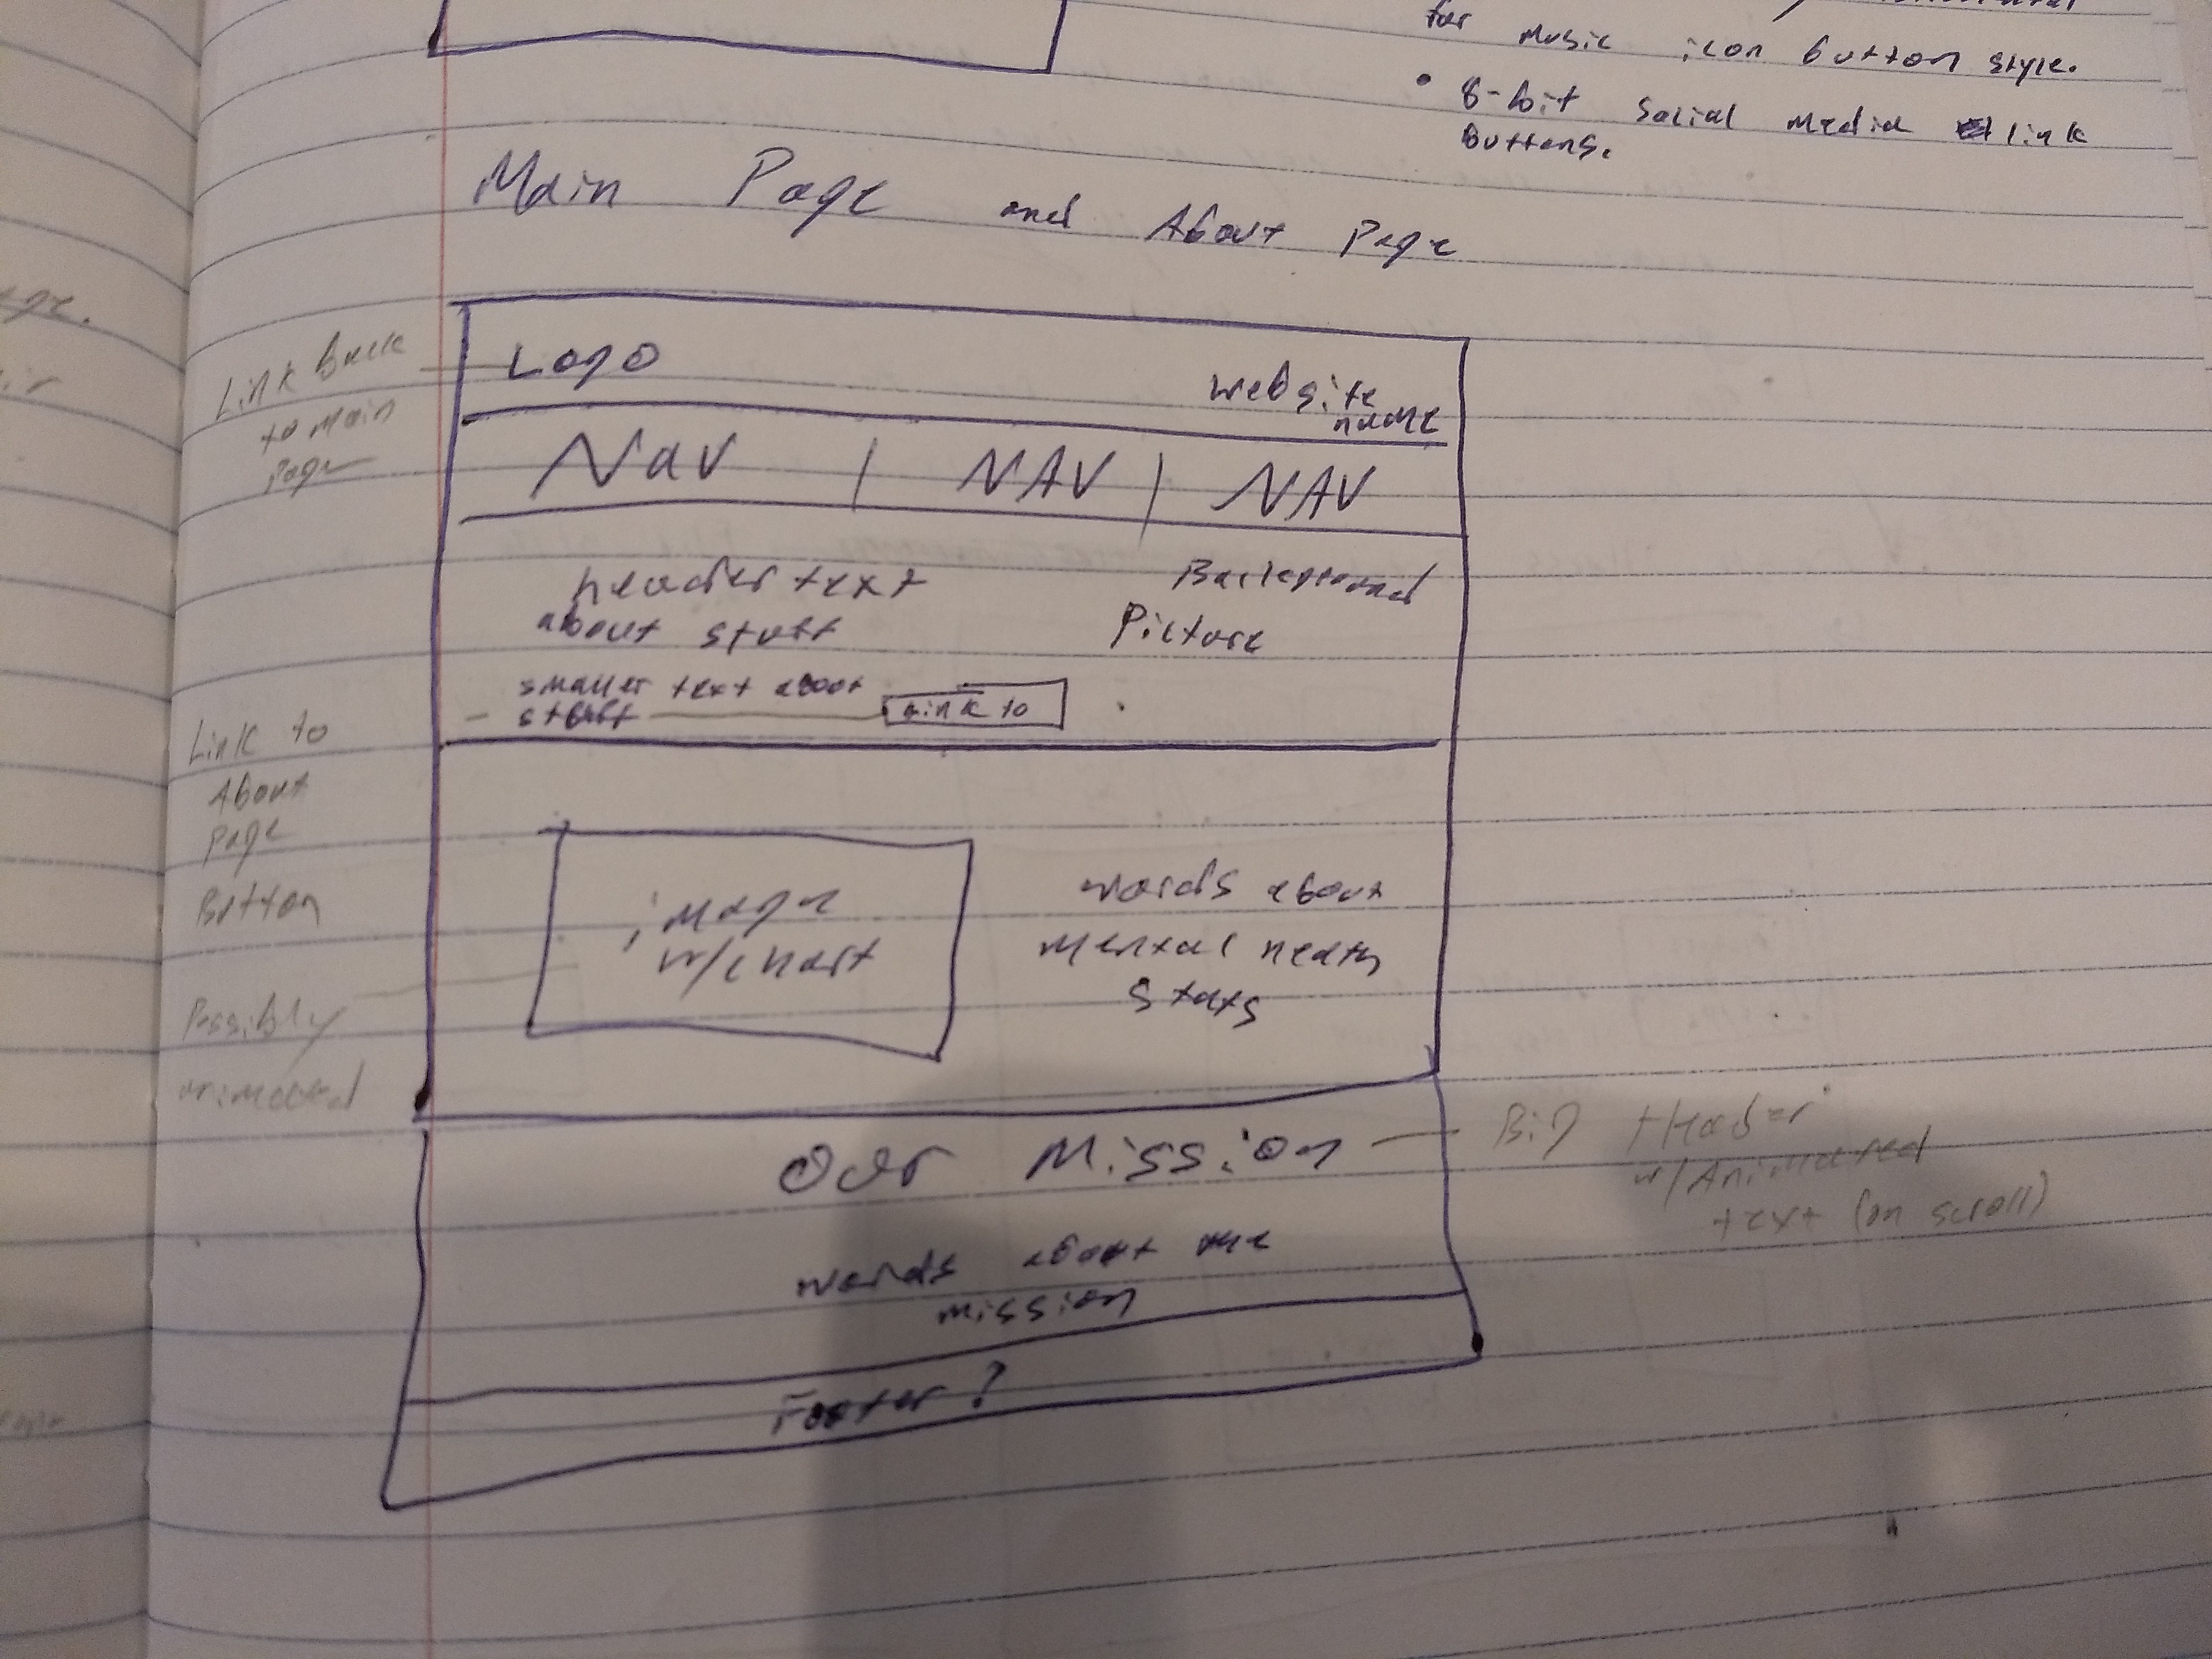 for music icon button style.
• 8-bit social media link
buttons.
Main Page and About Page
Link back
to main
page
Logo
website
name
Nav | NAV | NAV
header text
about stuff
Background
Picture
smaller text about
stuff
Link to
Link to
About
page
Button
image
w/chart
words about
mental heath
stats
Possibly
animated
Our Mission
Big Header
w/Animated
text (on scroll)
words about the
mission
Footer?